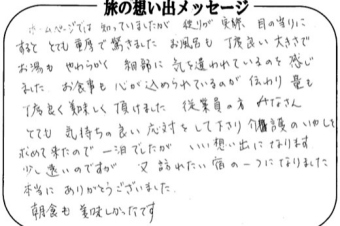 旅の想い出メッセージ
ホームページでは知っていましたが 実際 目の当りに
すると とても 驚きました お風呂も 丁度良い 大きさで
お湯も やわらかく 細部に 気を遣われているのを 感じ
ました お食事も 心が 込められているのが 伝わり 量も
丁度良く 美味しく 頂けました 従業員の方 みなさん
とても 気持ちの良い 応対を して下さり 介護の いやしを
求めて 来たので 一泊でしたが いい想い出に なります
少し 遠いのですが 又 訪れたい 宿の 一つに なりました
本当に ありがとうございました
朝食も 美味しかったです